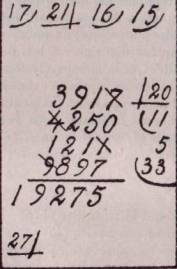 17 21 16 15
3917 20
4250 11
1211 5
9897 33
19275
27